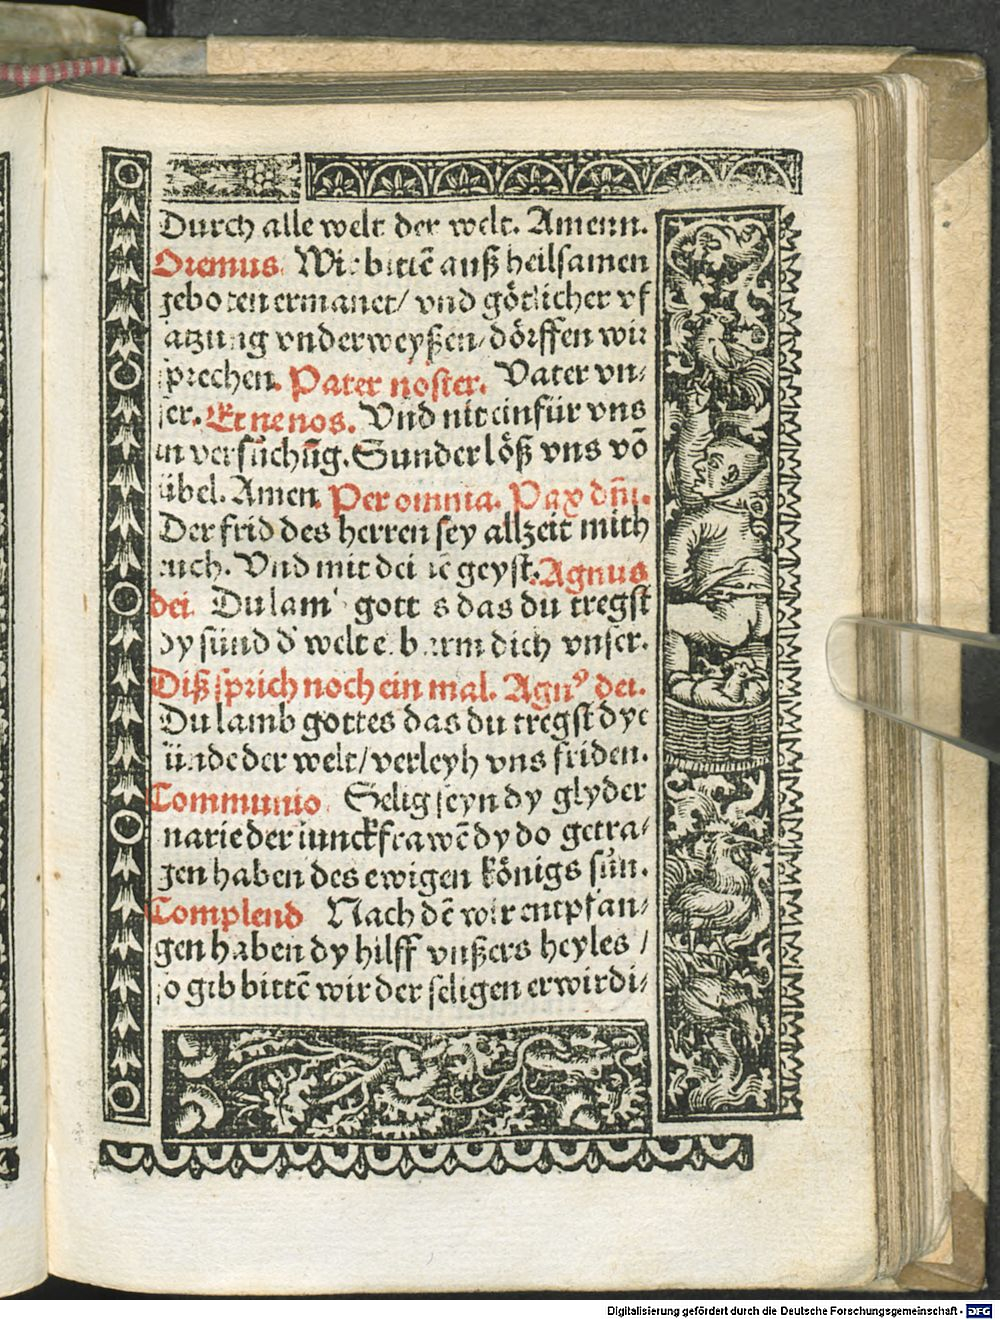 Durch alle welt der welt. Amenn.
Oremus. Wir bittē auß heilsamen
geboten ermanet/ vnd götlicher vf
satzung vnderweyßen/ dörffen wir
sprechen. Pater noster. Vater vn⸗
ser. Et ne nos. Vnd nit einfür vns
in versuchūg. Sunder löß vns vō
übel. Amen. Per omnia. Pax dn̄i.
Der frid des herren sey allzeit mith
euch. Vnd mit deinē geyst. Agnus
dei. Du lamb gottes das du tregst
dy sünd d' welt erbarm dich vnser.
Diß sprich noch ein mal. Agnꝰ dei.
Du lamb gottes das du tregst dye
sünde der welt/ verleyh vns friden.
Communio. Selig seyn dy glyder
marie der iunckfrawē dy do getra⸗
gen haben des ewigen königs sůn.
Complend Nach dē wir entpfan⸗
gen haben dy hilff vnßers heyles /
so gib bittē wir der seligen erwirdi⸗
Digitalisierung gefördert durch die Deutsche Forschungsgemeinschaft - DFG